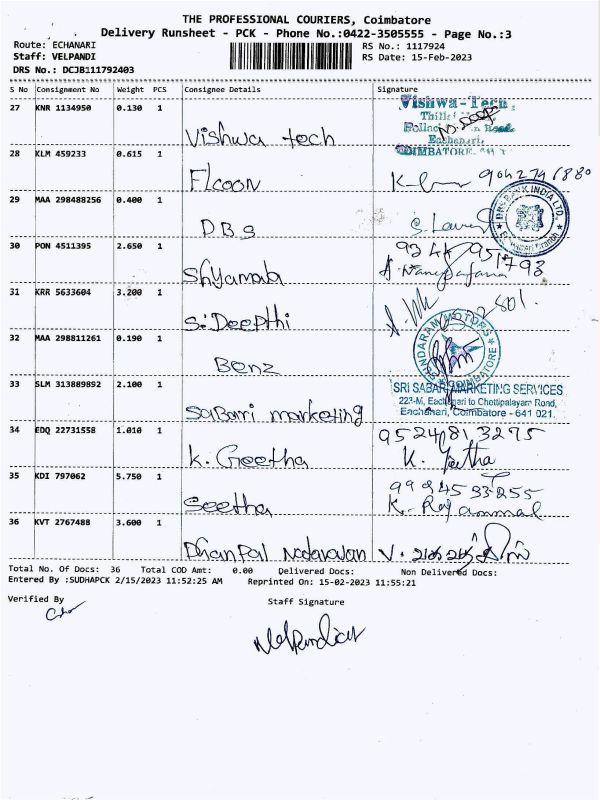 THE PROFESSIONAL COURIERS, Coimbatore
Delivery Runsheet - PCK - Phone No.:0422-3505555 - Page No.:3
Route: ECHANARI
RS No.: 1117924
Staff: VELPANDI
RS Date: 15-Feb-2023
DRS No.: DCJB111792403
S No Consignment No Weight PCS Consignee Details Signature
27 KNR 1134950 0.130 1 Vishwa tech
Vishwa-Tech
28 KLM 459233 0.615 1 Flcoon
29 MAA 298488256 0.400 1 DBS
DBS BANK INDIA LTD.
30 PON 4511395 2.650 1 Shyamala
31 KRR 5633604 3.200 1 S. Deepthi
32 MAA 298811261 0.190 1 Benz
SUNDARAM MOTORS
COIMBATORE
33 SLM 313889892 2.100 1 Sabarri marketing
SRI SABARI MARKETING SERVICES
223-M, Eachanari to Chettipalayam Road,
Eachanari, Coimbatore - 641 021.
34 EDQ 22731558 1.010 1 K. Geetha
9524813275
K. Geetha
35 KDI 797062 5.750 1 Seetha
K. Rajammal
36 KVT 2767488 3.600 1 Dhanpal
Total No. Of Docs: 36 Total COD Amt: 0.00 Delivered Docs: Non Delivered Docs:
Entered By :SUDHAPCK 2/15/2023 11:52:25 AM Reprinted On: 15-02-2023 11:55:21
Verified By
Staff Signature